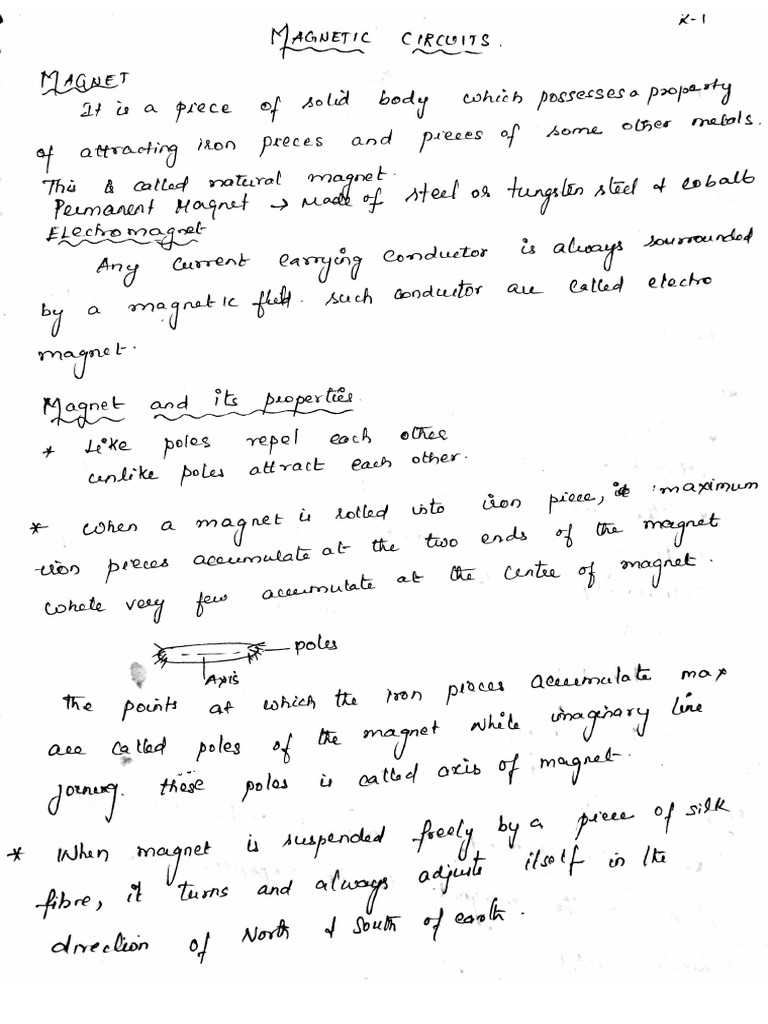 K-1
MAGNETIC CIRCUITS.
MAGNET
It is a piece of solid body which possesses a property
of attracting iron pieces and pieces of some other metals.
This is called natural magnet.
Permanent Magnet → Made of steel or tungsten steel & cobalt
Electromagnet
Any current carrying conductor is always sourrounded
by a magnetic field. such conductor are called electro
magnet.
Magnet and its properties
* Like poles repel each other
unlike poles attract each other.
* When a magnet is rolled into iron piece, maximum
iron pieces accumulate at the two ends of the magnet
while very few accumulate at the centre of magnet.
poles
Axis
The points at which the iron pieces accumulate max
are called poles of the magnet while imaginary line
joining these poles is called axis of magnet.
* When magnet is suspended freely by a piece of silk
fibre, it turns and always adjusts itself in the
direction of North & South of earth.